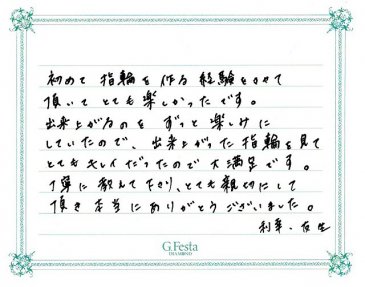 初めて指輪を作る経験をさせて
頂いてとても楽しかったです。
出来上がるのをずっと楽しみに
していたので、出来上がった指輪を見て
とてもキレイだったので大満足です。
丁寧に教えて下さり、とても親切にして
頂き本当にありがとうございました。
G.Festa
DIAMOND